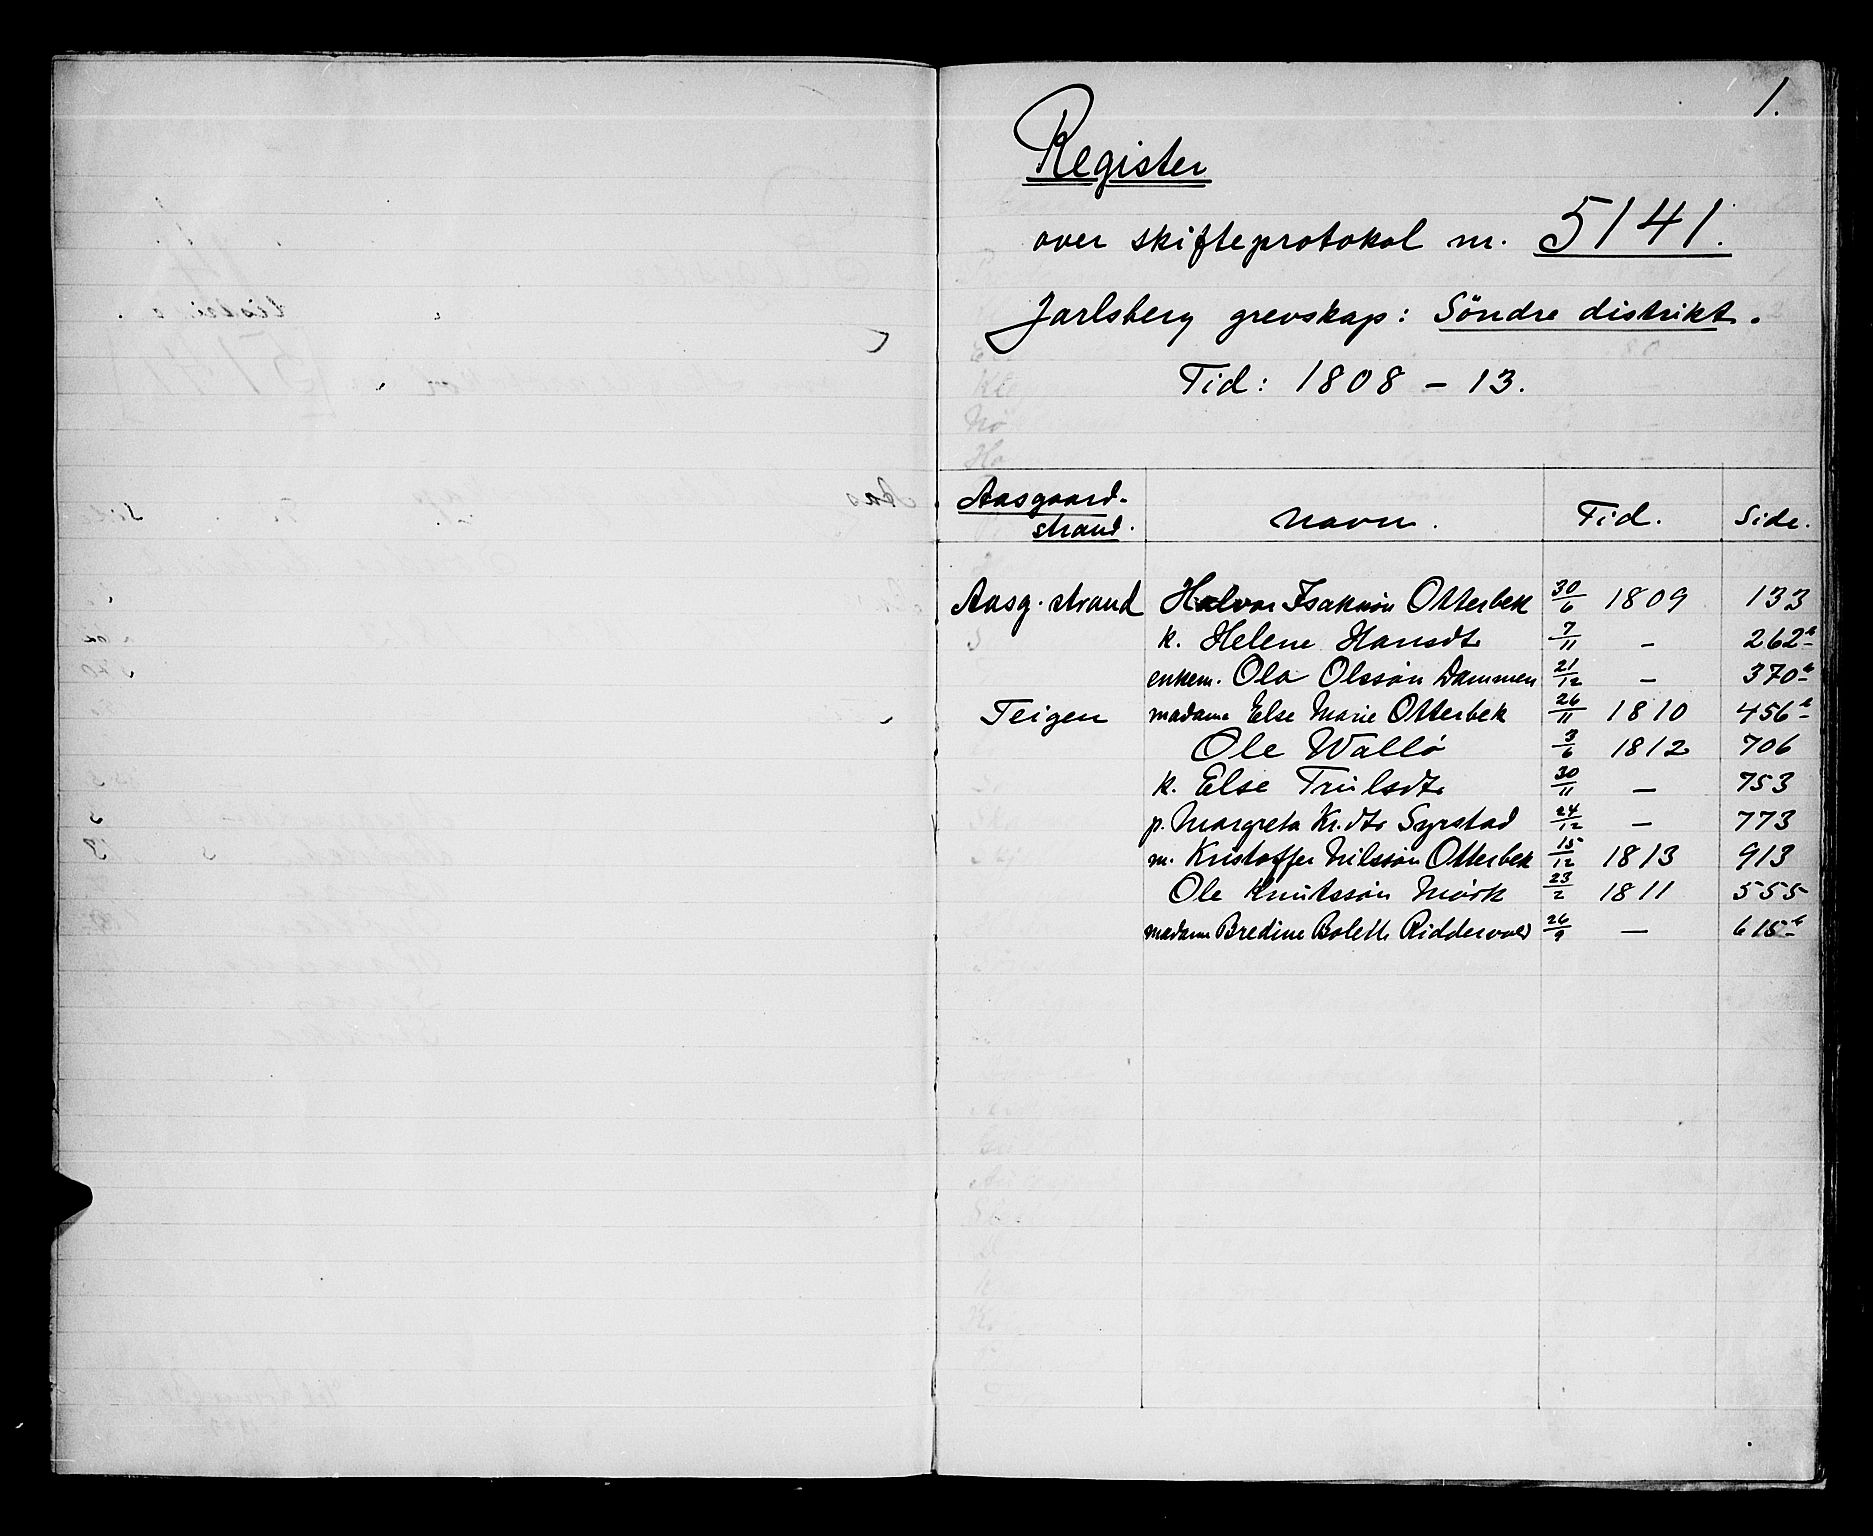 1.
Register
over skifteprotokol nr. 5141.
Jarlsberg grevskap: Söndre distrikt.
Tid: 1808 - 13.
Aasgaard-
strand. Navn. Tid. Side.
Aasg. strand Halvor Isaksøn Otterbek 30/6 1809 133
k. Helene Hansdtr 7/11 - 262b
enkem. Ola Olssøn Dammen 21/12 - 370b
Teigen madame Else Marie Otterbek 26/11 1810 456b
Ole Wallö 3/6 1812 706
k. Else Trulsdtr 30/11 - 753
p. Margreta Kr.dtr Syrstad 24/12 - 773
m. Kristoffer Nilssøn Otterbek 15/12 1813 913
Ole Knutssøn Mørk 23/2 1811 555
madame Bredine Bolette Riddervold 26/9 - 615b